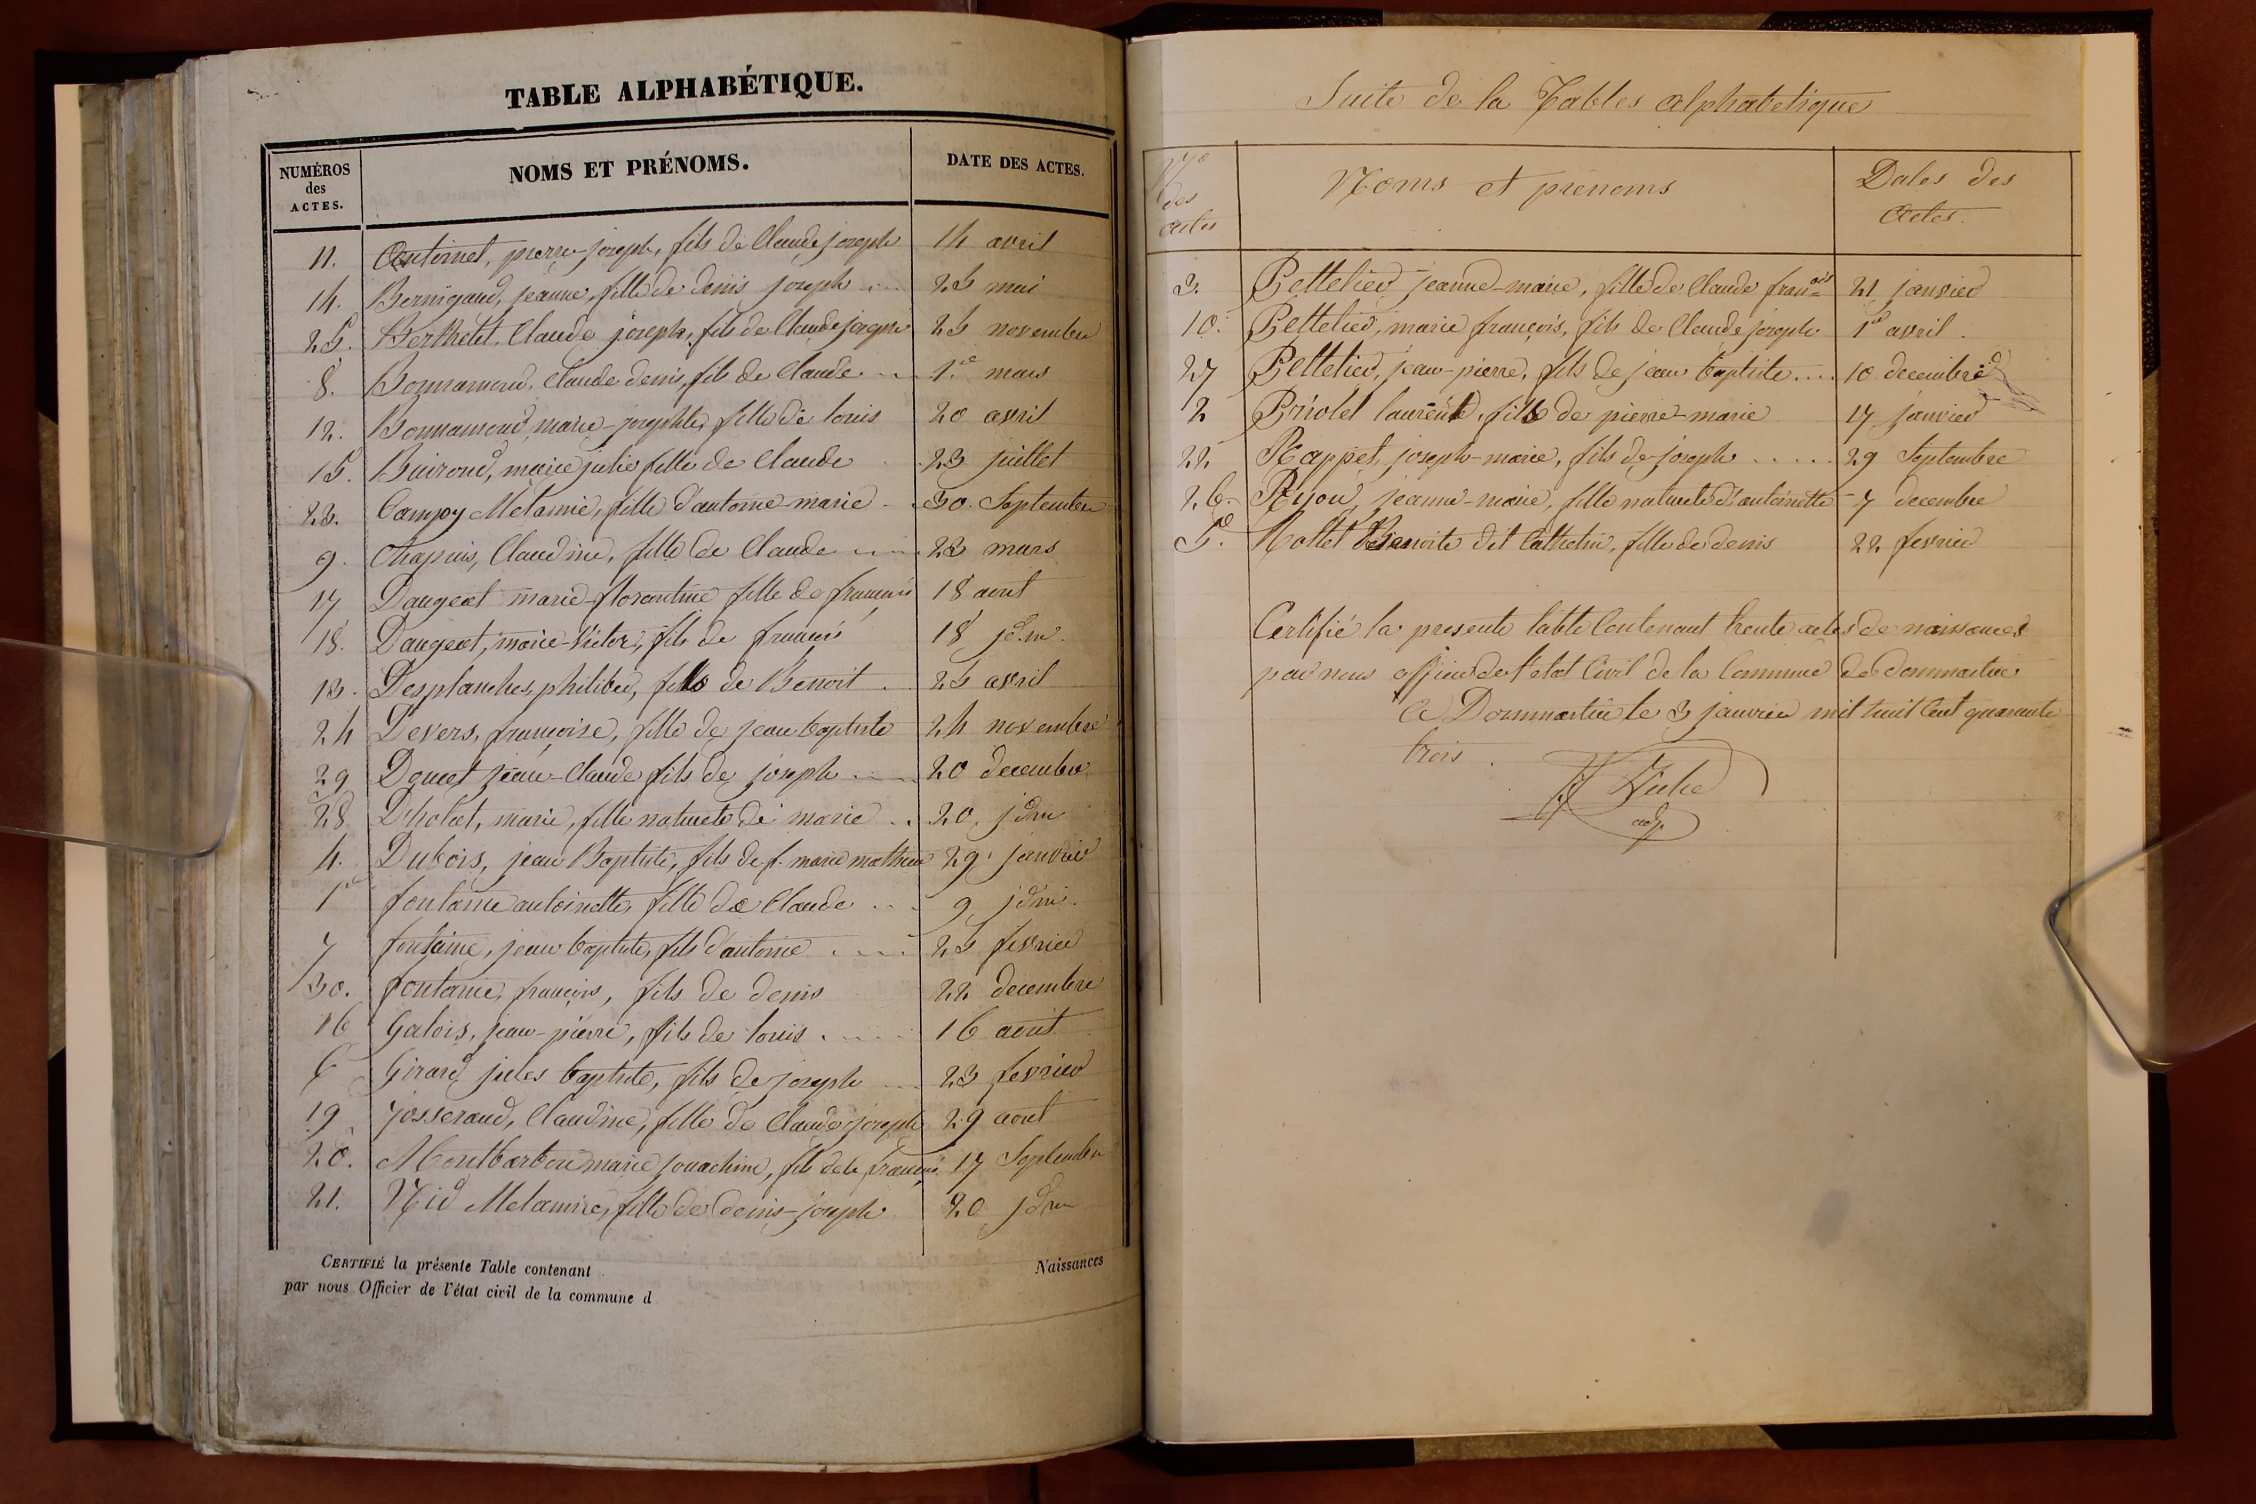 TABLE ALPHABÉTIQUE.
NUMÉROS des ACTES. NOMS ET PRÉNOMS. DATE DES ACTES.
11. pierre joseph, fils de Claude joseph 14 avril
14. Bernigaud, jeanne, fille de denis joseph 25 mai
25. Berthelet, Claude joseph, fils de Claude joseph 25 novembre
8. Bonnamour, Claude denis, fils de Claude 1er mars
12. Bonnamour, marie josephte, fille de louis 20 avril
15. marie julie fille de Claude 23 juillet
23. Campoy Melannie, fille d'antoine marie 30 Septembre
9. Chapuis, Claudine, fille de Claude 23 mars
17 Daugeat marie florentine fille de francois 18 aout
18. Daugeat, marie Victor, fils de francois 18 jdm.
13. Desplanches, philiber, fils de Benoit 25 avril
24 Devers, françoise, fille de jean baptiste 24 novembre
29 Doucet jean-Claude fils de joseph 20 decembre
28 marie, fille naturele de marie 20 jdm
4. Dubois, jean Baptiste, fils de f. marie mathieu 29 janvier
1er fontaine antoinette, fille de Claude 9 jdm.
7 fontaine, jean baptiste, fils d'antoine 25 fevrier
30. fontaine, françois, fils de denis 22 decembre
16 Galois, jean-pierre, fils de louis 16 aout
6 Girard jules baptiste, fils de joseph 23 fevrier
19 Josserand, Claudine, fille de Claude joseph 29 aout
20. Montbarbon marie jouachim, fils de francois 17 Septembre
21. Nid Melannie, fille de denis-joseph 20 jdm
CERTIFIÉ la présente Table contenant Naissances
par nous Officier de l'état civil de la commune d
Suite de la Tables alphabetique
No des actes Noms et prenoms Dates des Actes.
3. Pelletier jeanne-marie, fille de Claude franois 21 janvier
10. Pelletier, marie françois, fils de Claude joseph 1er avril.
27 Pelletier, jean-pierre, fils de jean baptiste 10 decembre
2 Briolet laurent, fils de pierre-marie 17 janvier
22 Rappet, joseph-marie, fils de joseph 29 Septembre
26. jeanne-marie, fille naturele d'antoinette 7 decembre
5. Benoite dit Cathelin, fille de denis 22 fevrier
Certifié la presente table Contenant trente actes de naissances
par nous officier de l'etat Civil de la Commune de dommartin
A Dommartin le 3 janvier mil huit Cent quarente
trois.
adj.